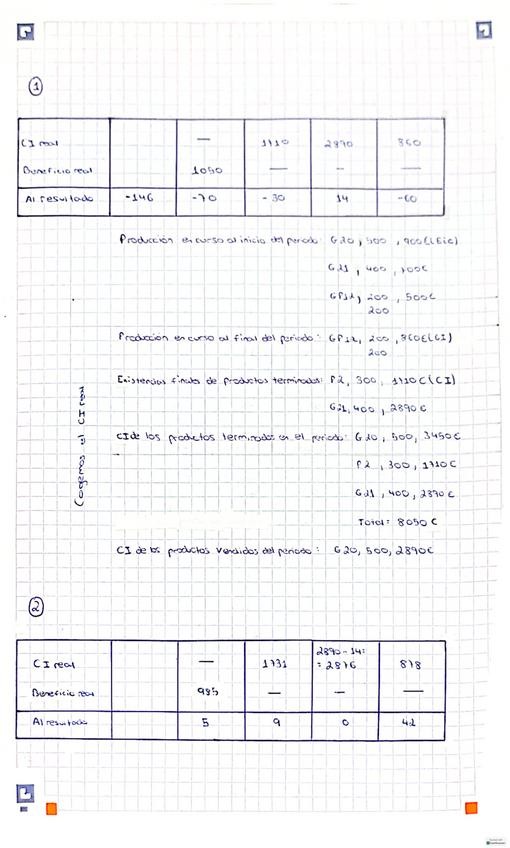 1
CI real — 1710 2890 860
Beneficio real 1050 — — —
Al resultado -146 -70 -30 14 -60
Producción en curso al inicio del periodo: G20, 500, 900€ (Eic)
G21, 400, 700€
GP12, 200, 500€
200
Producción en curso al final del periodo: GP12, 200, 860€ (CI)
200
Existencias finales de productos terminados: P2, 300, 1710€ (CI)
G21, 400, 2890€
Cogemos el CI real
CI de los productos terminados en el periodo: G20, 500, 3450€
P2, 300, 1710€
G21, 400, 2890€
Total: 8050€
CI de los productos vendidos del periodo: G20, 500, 2890€
2
CI real — 1731 2890-14= 
= 2876 818
Beneficio real 985 — — —
Al resultado 5 9 0 42